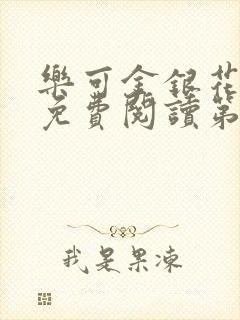 樂可金銀花
免費閱讀第
我是果凍